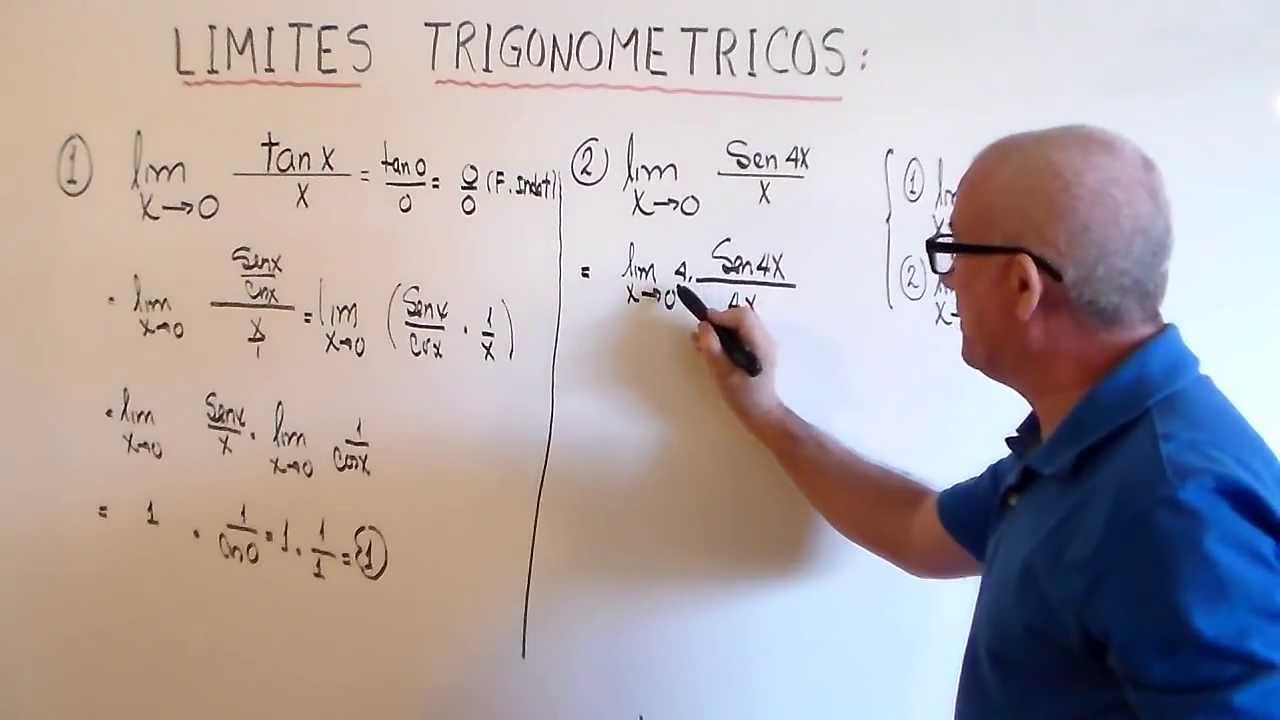 LIMITES TRIGONOMETRICOS:
① lim x→0 tan x / x = tan 0 / 0 = 0/0 (F. Indet)
= lim x→0 (Sen x / Cos x) / (x / 1) = lim x→0 (Sen x / Cos x · 1 / x)
= lim x→0 Sen x / x · lim x→0 1 / Cos x
= 1 · 1 / Cos 0 = 1 · 1 / 1 = 1
② lim x→0 Sen 4x / x
= lim x→0 4 · Sen 4x / 4x
①
②